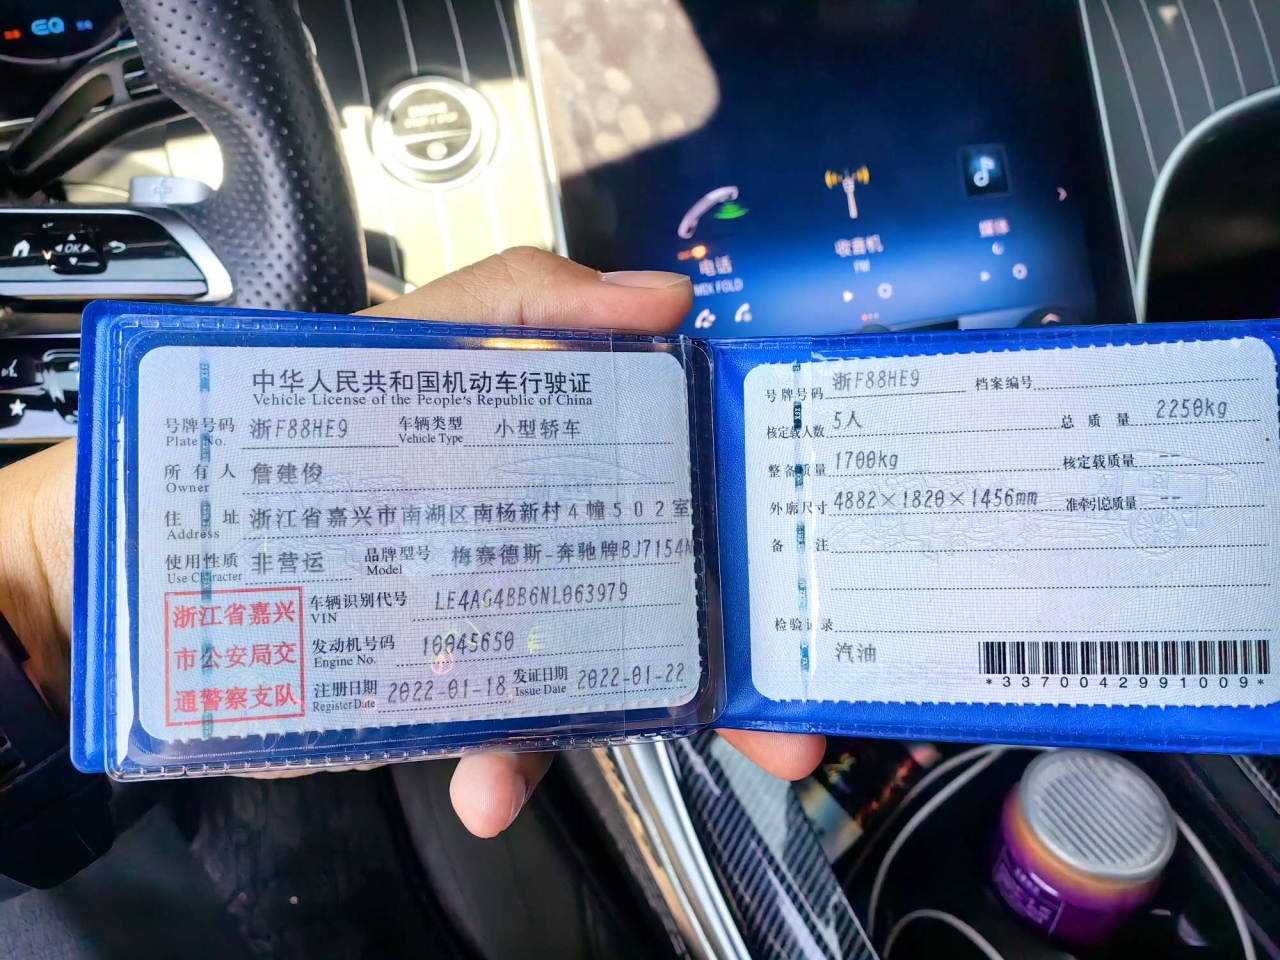 EQ
OK
电话
MIX FOLD
收音机
FM
媒体
中华人民共和国机动车行驶证
Vehicle License of the People's Republic of China
号牌号码 浙F88HE9 车辆类型 小型轿车
Plate No. Vehicle Type
所有人 詹建俊
Owner
住址 浙江省嘉兴市南湖区南杨新村4幢502室
Address
使用性质 非营运 品牌型号 梅赛德斯-奔驰牌BJ7154
Use Character Model
浙江省嘉兴
市公安局交
通警察支队
车辆识别代号 LE4AG4BB6NL063979
VIN
发动机号码 10045650
Engine No.
注册日期 2022-01-18 发证日期 2022-01-22
Register Date Issue Date
号牌号码 浙F88HE9 档案编号
核定载人数 5人 总质量 2250kg
整备质量 1700kg 核定载质量 --
外廓尺寸 4882×1820×1456mm 准牵引总质量 --
备注
检验记录
汽油
*3370042991009*